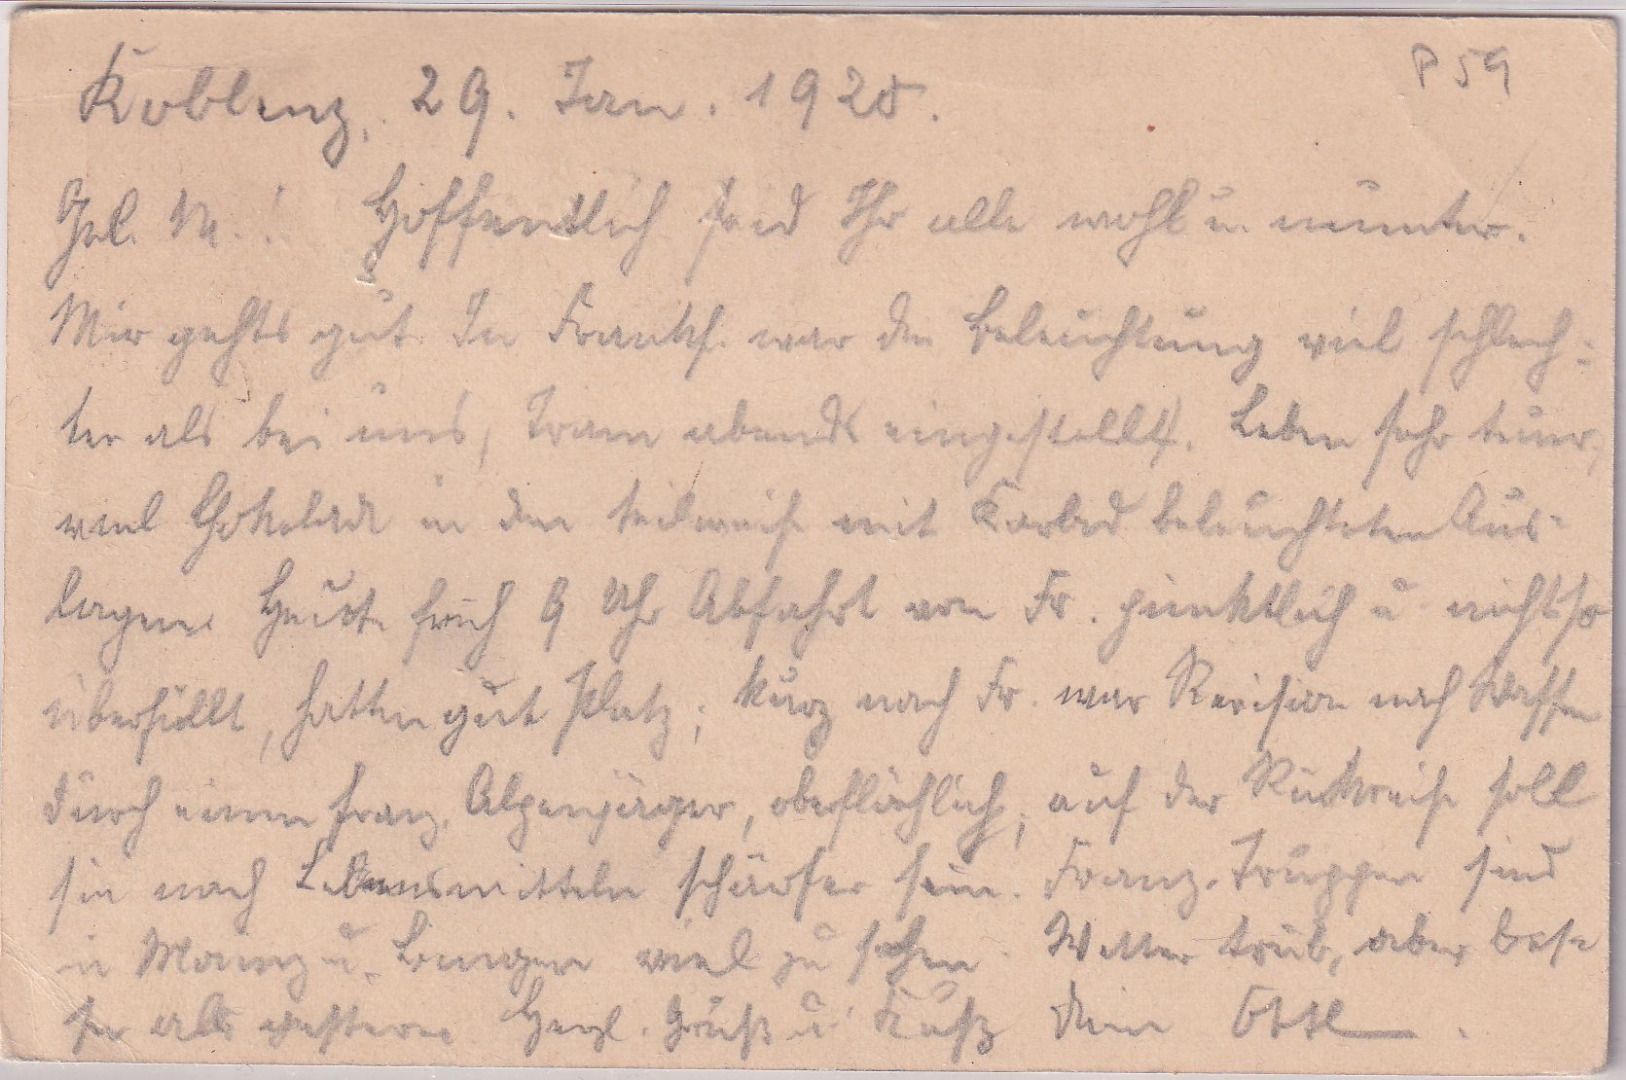 P 59
Koblenz, 29. Jan. 1920.
Gel. M.! Hoffentlich seid Ihr alle wohl u. munter.
Mir gehts gut. In Frankf. war die Beleuchtung viel schlech-
ter als bei uns, Tram abends eingestellt. Leben sehr teuer,
viel Schokolade in den teilweise mit Karbid beleuchteten Aus-
lagen. Heute früh 9 Uhr Abfahrt von Fr. pünktlich u. nicht so
überfüllt, hatten gut Platz; kurz nach Fr. war Revision nach Waffen
durch einen franz. Alpenjäger, oberflächlich; auf der Rückreise soll
sie nach Lebensmitteln schärfer sein. Franz. Truppen sind
in Mainz u. Bingen viel zu sehen. Wetter trüb, aber bes-
ser als gestern. Herzl. Gruß u. Kuß Dein